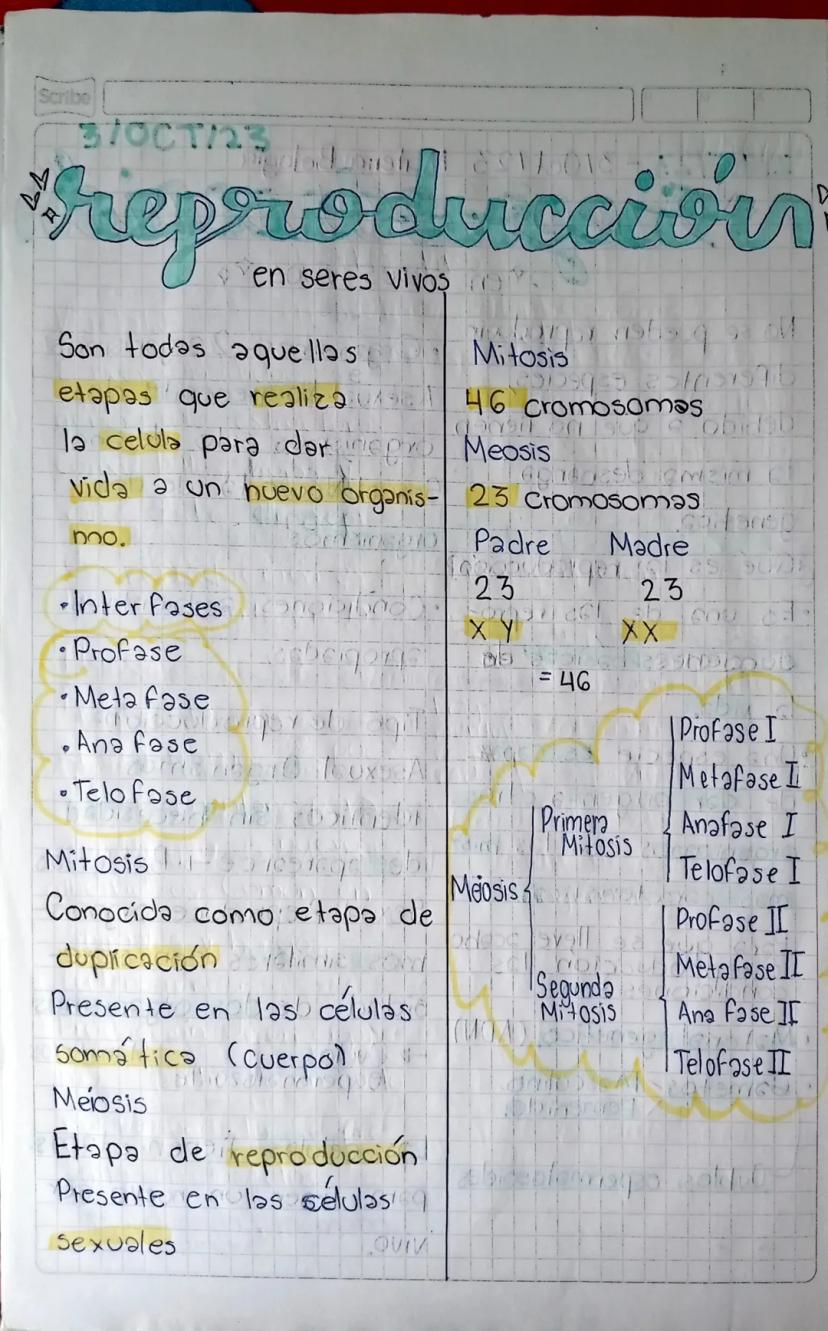 Scribe
3/OCT/23
reproducción
en seres vivos
Son todas aquellas
etapas que realiza
la celula para dar
vida a un nuevo organis-
mo.
• Interfases
• Profase
• Metafase
• Anafase
• Telofase
Mitosis
Conocida como etapa de
duplicación
Presente en las células
somática (cuerpo)
Meiosis
Etapa de reproducción
Presente en las células
sexuales
Mitosis
46 cromosomas
Meosis
23 cromosomas
Padre Madre
23 23
XY XX
= 46
Meiosis
Primera
Mitosis
Profase I
Metafase I
Anafase I
Telofase I
Segunda
Mitosis
Profase II
Metafase II
Anafase II
Telofase II